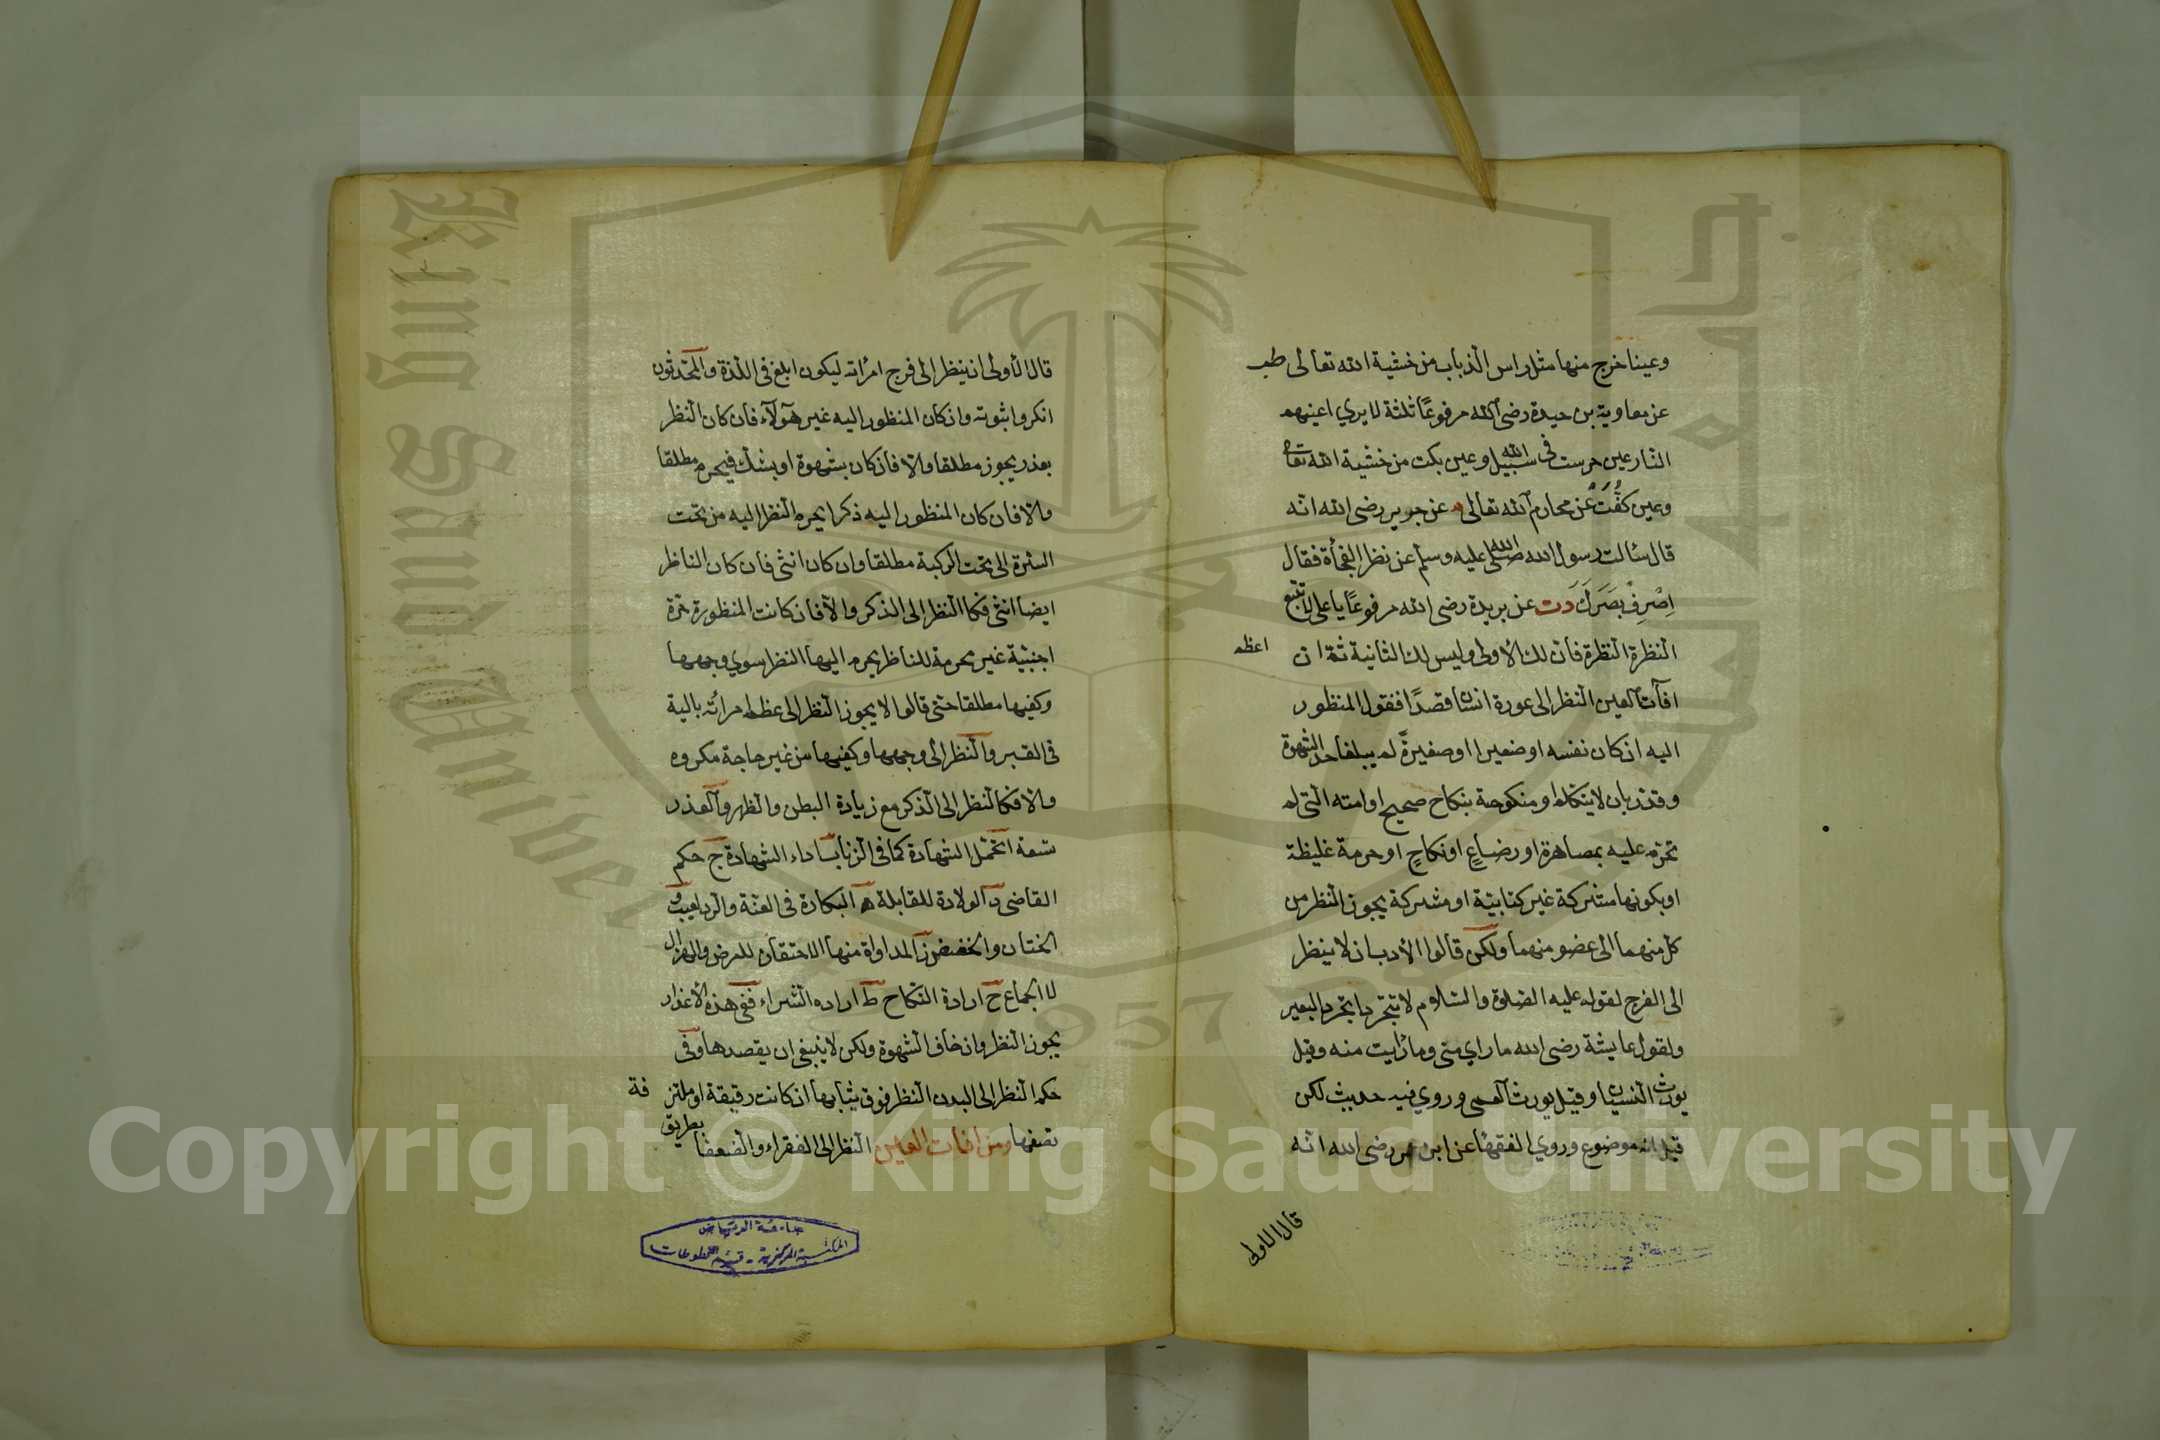 وعينا خرج منها مثل راس الذباب من خشية الله تعالى طب
عن معاوية بن حيدة رضي الله مرفوعًا ثلثة لا يري اعينهم
النار عين حرست في سبيل الله وعين بكت من خشية الله تعالى
وعين كفّت عن محارم الله تعالى م عن جرير رضى الله انه
قال سئالت رسول الله صلى الله عليه وسلم عن نظر الفجأة فقال
اِصْرِفْ بَصَرَكَ دت عن بريدة رضى الله مرفوعًا يا على لا تتبع
النظرة النظرة فان لك الأولى وليس لك الثانية ثم ان اعظم
افآت العين النظر الى عورة انسان قصدًا فنقول المنظور
اليه ان كان نفسه او صغيرا او صغيرةً لم يبلغا حد الشهوة
وقدر بان لا يتكلما او منكوحة بنكاح صحيح او امته التى لم
تحرم عليه بمصاهرة او رضاعٍ او نكاحٍ او حرمة غليظة
او بكونها مشركة غير كتابيّة او مشركة يجوز النظر من
كل منهما الى عضو منهما ولكن قالوا الأدب ان لا ينظر
الى الفرج لقوله عليه الصلوة والسلام لا تتجردا تجرد البعير
ولقول عايشة رضى الله ما راي منى وما رأيت منه وقيل
يورث النسيان وقيل يورث العمى وروي فيه حديث لكن
قيل انه موضوع وروي الفقهاء عن ابن عمر رضى الله انه
قال الاولى
قال الأولى ان ينظر الى فرج امرأته ليكون ابلغ فى اللذة والمحدثون
انكروا ثبوته وان كان المنظور اليه غير هؤلآء فان كان النظر
بعذر يجوز مطلقا والا فان كان بشهوة او بشك فيحرم مطلقا
والا فان كان المنظور اليه ذكرا يحرم النظر اليه من تحت
السرة الى تحت الركبة مطلقا وان كان انثى فان كان الناظر
ايضا انثى فكالنظر الى الذكر والا فان كانت المنظورة حرة
اجنبية غير محرمة للناظر يحرم اليها النظر سوي وجهها
وكفيها مطلقا حتى قالوا لا يجوز النظر الى عظم امرأة بالية
فى القبر والنظر الى وجهها وكفيها من غير حاجة مكروه
والا فكالنظر الى الذكر مع زيادة البطن والظهر والعذر
تسعة ا تحمل الشهادة كما فى الزنا ب اداء الشهادة ج حكم
القاضى د الولادة للقابلة ه البكارة فى العنة والرد بالعيب و
الختان والخفض ز المداواة منها الاحتقان للمرض والهزال
لا الجماع ح ارادة النكاح ط اراده الشراء ففى هذه الأعذار
يجوز النظر وان خاف الشهوة ولكن لا ينبغى ان يقصدها وفى
حكم النظر الى البدن النظر فوق ثيابها ان كانت رقيقة او ملتزقة
تصفها ومن افات العين النظر الى الفقراء والضعفا بطريق
جامعة الرياض
المكتبة المركزية - قسم المخطوطات
King Saud University
1957
Copyright © King Saud University